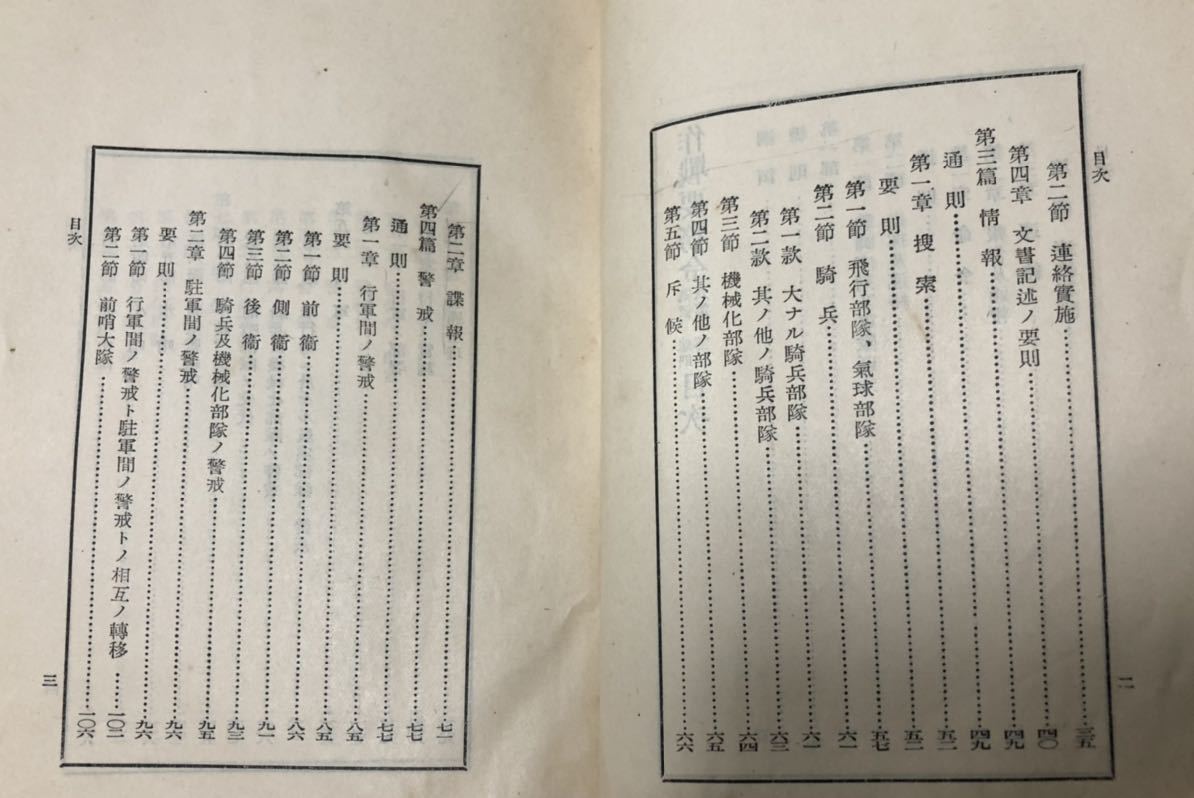 目次
第二節　連絡實施……三五
第四章　文書記述ノ要則……四〇
第三篇　情報……四九
通則……四九
第一章　捜索……五二
要則……五二
第一節　飛行部隊、氣球部隊……五七
第二節　騎兵……六一
第一款　大ナル騎兵部隊……六一
第二款　其ノ他ノ騎兵部隊……六三
第三節　機械化部隊……六四
第四節　其ノ他ノ部隊……六五
第五節　斥候……六六
二
第二章　諜報……七一
第四篇　警戒……七七
通則……七七
第一章　行軍間ノ警戒……八五
要則……八五
第一節　前衞……八六
第二節　側衞……九一
第三節　後衞……九三
第四節　騎兵及機械化部隊ノ警戒……九五
第二章　駐軍間ノ警戒……九六
要則……九六
第一節　行軍間ノ警戒ト駐軍間ノ警戒トノ相互ノ轉移……一〇二
第二節　前哨大隊……一〇六
目次
三